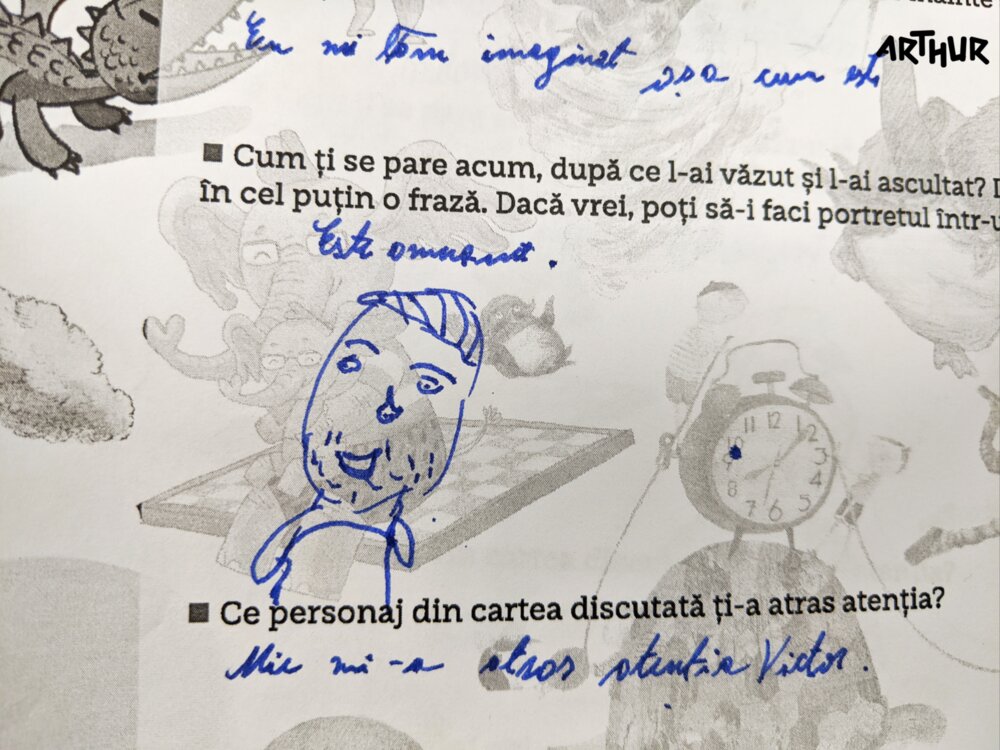 ARTHUR
Eu mi l-am imaginat așa cum este
■ Cum ți se pare acum, după ce l-ai văzut și l-ai ascultat?
în cel puțin o frază. Dacă vrei, poți să-i faci portretul într-u
Este amuzant.
11 12 1 2 3 4 5 6 7 8
■ Ce personaj din cartea discutată ți-a atras atenția?
Mie mi-a atras atenția Victor.